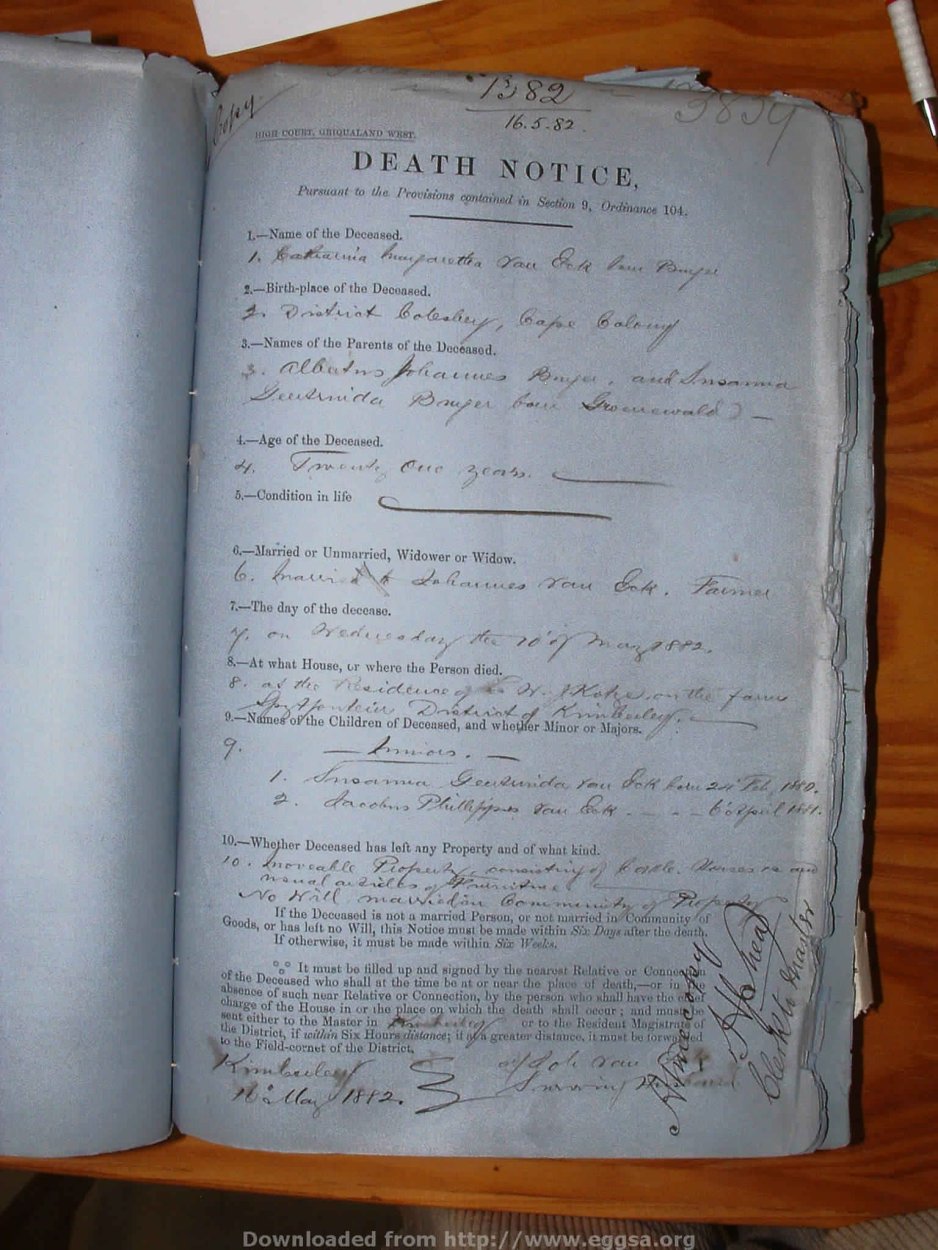 Copy.
1382
3839
16.5.82
HIGH COURT, GRIQUALAND WEST.
DEATH NOTICE,
Pursuant to the Provisions contained in Section 9, Ordinance 104.
1.—Name of the Deceased.
1. Catharina Margaretha van Eck born
2.—Birth-place of the Deceased.
2. District Colesberg, Cape Colony
3.—Names of the Parents of the Deceased.
3. Albertus Johannes and Susanna
Geertruida born Groenewald) —
4.—Age of the Deceased.
4. Twenty One years.
5.—Condition in life
6.—Married or Unmarried, Widower or Widow.
6. Married to Johannes van Eck. Farmer
7.—The day of the decease.
7. on Wednesday the 10th of May 1882.
8.—At what House, or where the Person died.
8. at the Residence of W. J. Kotze, on the farm
District of Kimberley.
9.—Names of the Children of Deceased, and whether Minor or Majors.
9. — Minors. —
1. Susanna Geertruida van Eck born 24 Feb. 1880.
2. Jacobus Phillippus van Eck - - - 6 April 1881.
10.—Whether Deceased has left any Property and of what kind.
10. Moveable Property, consisting of Cattle. Horses and
usual articles of Furniture
No Will married in Community of Property
If the Deceased is not a married Person, or not married in Community of
Goods, or has left no Will, this Notice must be made within Six Days after the death.
If otherwise, it must be made within Six Weeks.
It must be filled up and signed by the nearest Relative or Connection
of the Deceased who shall at the time be at or near the place of death,—or in the
absence of such near Relative or Connection, by the person who shall have the chief
charge of the House in or the place on which the death shall occur; and must be
sent either to the Master in Kimberley or to the Resident Magistrate of
the District, if within Six Hours distance; if at a greater distance, it must be forwarded
to the Field-cornet of the District.
Kimberley
16th May 1882.
van
Surviving Husband
A true copy
Clerk to Master
Downloaded from http://www.eggsa.org